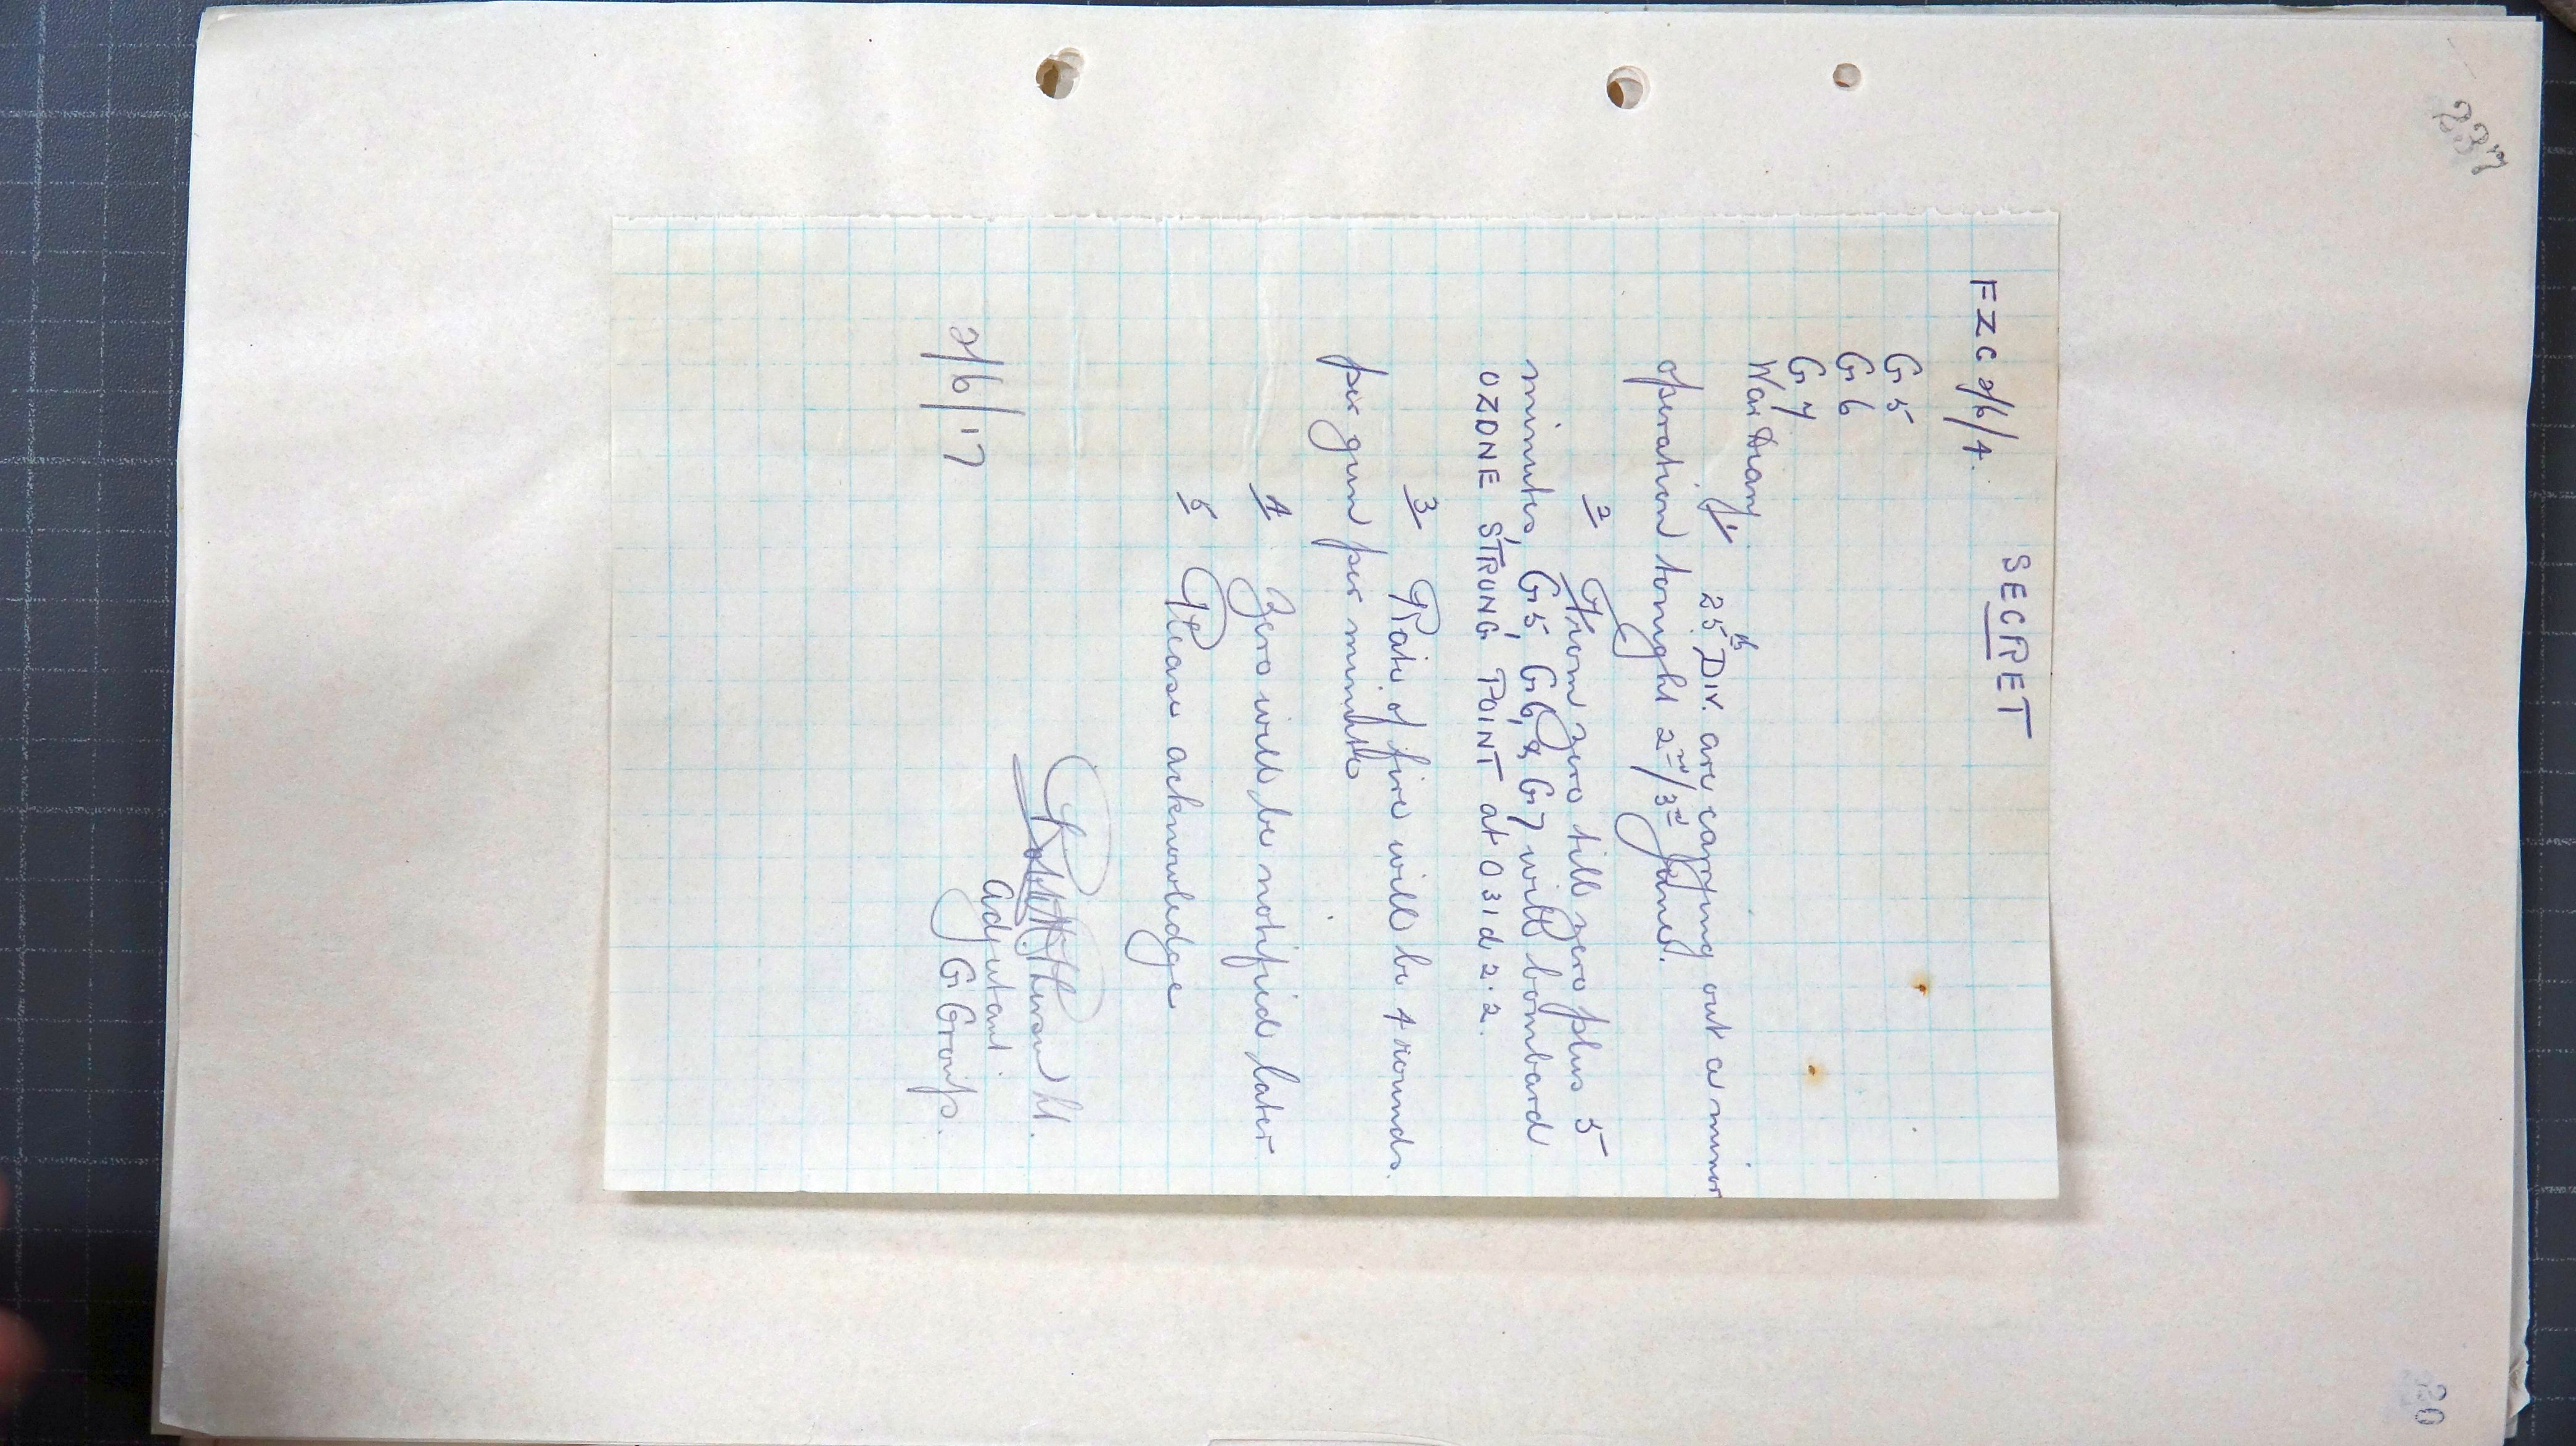 237
SECRET
FZC 2/6/4.
G 5
G 6
G 7
War Diary
1 25th Div. are carrying out a minor
operation tonight 2nd/3rd June.
2 From zero till zero plus 5
minutes, G5, G6, & G7 will bombard
OZONE STRONG POINT at O 31 d 2.2.
3 Rate of fire will be 4 rounds
per gun per minute
4 Zero will be notified later
5 Please acknowledge
Lt.
Adjutant.
G Group.
2/6/17
20